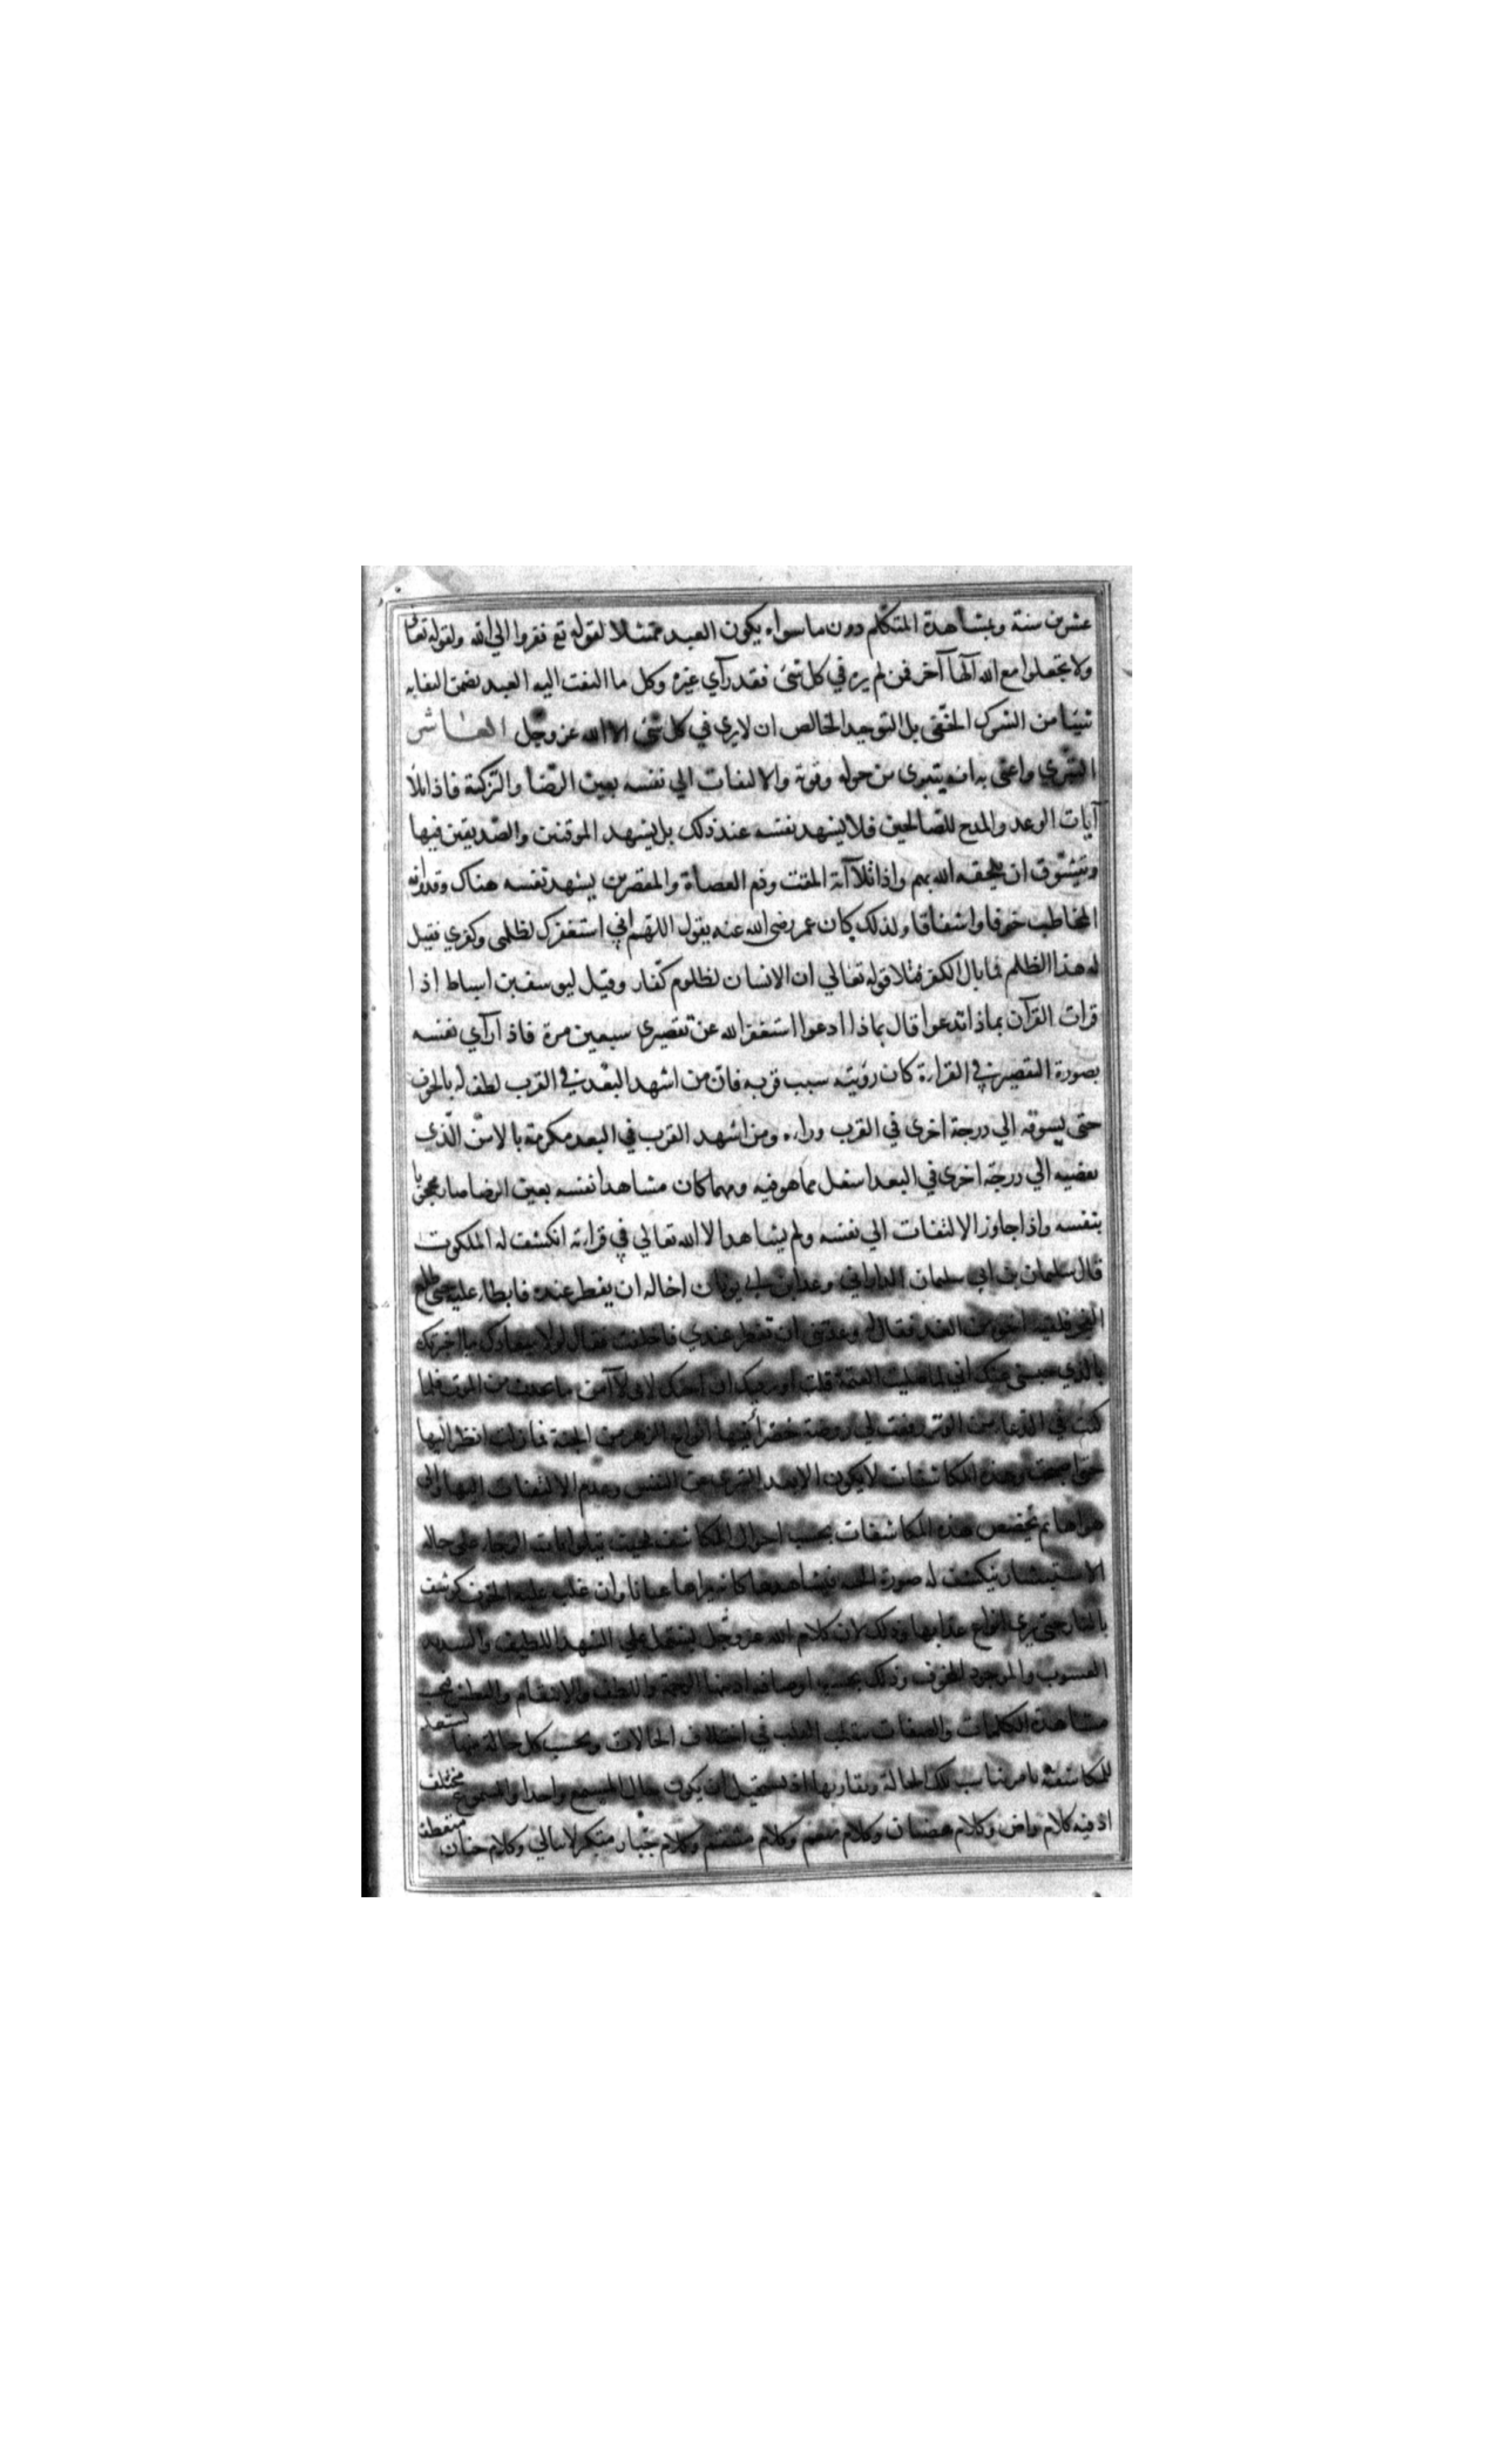 عشرين سنة وبمشاهدة المتكلم دون ما سواه يكون العبد ممتثلا لقوله تع ففروا الي الله ولقوله تعالى
ولا تجعلوا مع الله آلها آخر فمن لم يره في كل شئ فقد رآي غيره وكل ما التفت اليه العبد تضمن التفاته
شيئا من الشرك الخفي بل التوحيد الخالص ان لا يري في كل شئ الا الله عز وجل العاشر
التبري واعني به انه يتبرى من حوله وقوته والالتفات الي نفسه بعين الرضا والتزكية فاذا تلا
آيات الوعد والمدح للصالحين فلا يشهد نفسه عند ذلك بل يشهد الموقنين والصديقين فيها
ويتشوق ان يلحقه الله بهم واذا تلا آية المقت وذم العصاة والمقصرين يشهد نفسه هناك وقدر انه
المخاطب خوفا واشفاقا ولذلك كان عمر رضي الله عنه يقول اللهم اني استغفرك لظلمي وكفري فقيل
له هذا الظلم فما بال الكفر فتلا قوله تعالي ان الانسان لظلوم كفار وقيل ليوسف بن اسباط اذا
قرات القرآن بماذا تدعوا قال بماذا ادعوا استغفر الله عن تقصيري سبعين مرة فاذا رآي نفسه
بصورة التقصير في القراءة كان رؤيته سبب قربه فان من اشهد البعد في القرب لطف له بالخوف
حتى يسوقه الي درجة اخرى في القرب وراءه ومن اشهد القرب في البعد مكر به بالامن الذي
يفضيه الي درجة اخرى في البعد اسفل مما هو فيه ومهما كان مشاهدا نفسه بعين الرضا صار محجوبا
بنفسه واذا جاوز الالتفات الي نفسه ولم يشاهد الا الله تعالي في قراءته انكشف له الملكوت
قال سليمان بن ابي سليمان الداراني وعد ابن ثوبان اخا له ان يفطر عنده فابطاء عليه حتى طلع
الفجر فلقيه اخوه من الغد فقال له وعدتني ان تفطر عندي فاخلفت فقال لولا ميعادك ما اخبرتك
بالذي حبسني عنك اني لما صليت العتمة قلت اوتر قبل ان اجيئك لاني لا آمن ما يحدث من الموت فلما
كنت في الدعاء من الوتر رفعت لي روضة خضراء فيها انواع الزهر من الجنة فما زلت انظر اليها
حتى اصبحت وهذه المكاشفات لا يكون الا بعد التبري عن النفس وعدم الالتفات اليها والى
هواها ثم تخصص هذه المكاشفات بحسب احوال المكاشف فحيث يتلو ايات الرجاء على حاله
الاستبشار ينكشف له صورة الجنة فيشاهدها كانه يراها عيانا وان غلب عليه الخوف كوشف
بالنار حتى يرى انواع عذابها وذلك لان كلام الله عز وجل يشتمل علي السهل اللطيف والشديد
العسوف والمرجو والمخوف وذلك بحسب اوصافه اذ منها الرحمة واللطف والانتقام والبطش فبحسب
مشاهدة الكلمات والصفات يتقلب القلب في اختلاف الحالات وبحسب كل حالة منها يستعد
للمكاشفة بامر يناسب تلك الحالة ويقاربها اذ يستحيل ان يكون حال المستمع واحدا والمسموع مختلف
اذ فيه كلام راض وكلام غضبان وكلام منعم وكلام منتقم وكلام جبار متكبر لا يبالي وكلام حنان متعطف